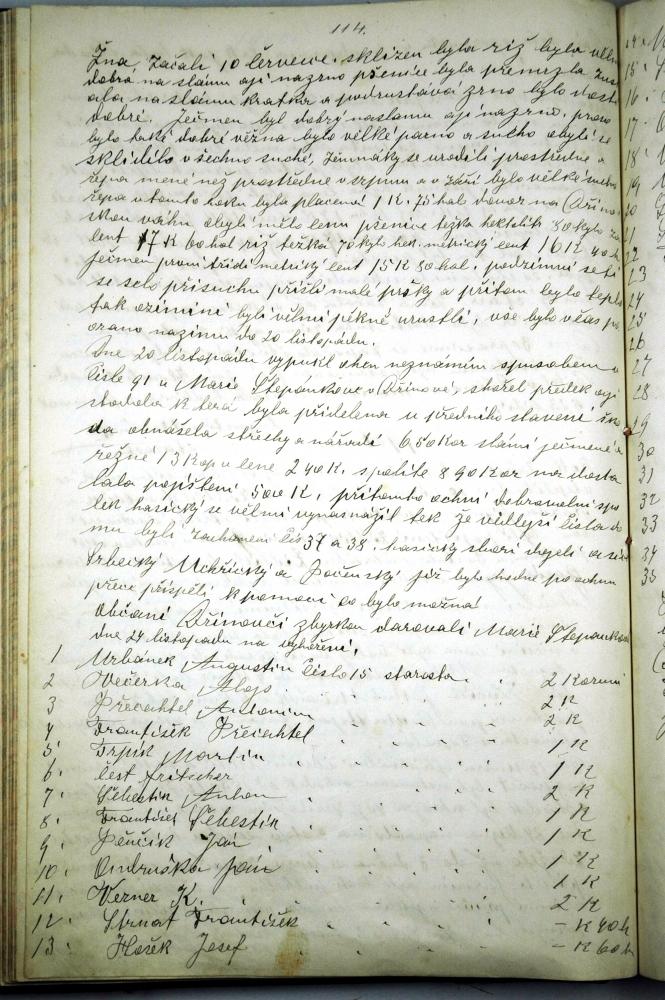 114.
Žna, začali 10 července. sklizen byla riž byla velm
dobrá na slámu aji nazrno pšenice byla přemrzla zus
ala na slámu kratka a podrustává zrno bylo dosti
dobré. Ječmen byl dobrý naslamu aji nazrno, proso
bylo také dobré vežna bylo velké parno a sucho obylí se
sklidilo všechno suché, zemnáky se urodili prostředně a
řepa méně než prostředne v srpnu a v září bylo velké sucho
řepa vtomto roku byla placena 1 K. 75 hal dovoz na Dřino
skou váhu obyli mělo cenu pšenice težka hektolit 80 kylo za
cent 17 K 60 hal riž težká 70 kylo hek. metrický cent 16 K 40 h
ječmen první třidi metrický cent 15 K 80 hal. podzimní setí
se selo přisuchu přišli malé pršky a přitom bylo teplo
tak oziminé byli velmi pěkné urustlí, vse bylo včas po
orano nazimu do 20 listopadu.
Dne 20 listopadu vypukl oheň neznámím spusobem v
čisle 91 u Marie Štepánkove v Dřinové, shořel předek aji
stodola která byla přidelena u předního stavení ško
da obnášela střechy a nářadí 650 Kor slámi ječmené a
režné 13 Kop v cene 240 K. spolite 890 Kor na dosta
lala pojištení 500 K, přitomto ohni dobrovolni spo
lek hasický se velmi vynasnážil tek že vedlejší čisla do
mu byli zachovaní čis 37 a 38. hasický sbori dojeli a sice
Srbecký Uhřický a Počenský již bylo hodne po ohni
přece přispěli k pomoci co bylo možna!
Občani Dřinovči zbyrkou darovali Marie Štepankove
dne 24 listopadu na vyhoření.
1 Urbánek Augustin číslo 15 starosta. 2 Koruni
2 Večerka Alojs 2 K
3 Přecechtel Antonín 2 K
4 František Přecechtel 1 K
5 Trpik Martin 1 K
6. čest Fritscher 2 K
7. Šebestik Anton 1 K
8. František Šebestik 1 K
9. Pěnčík Jan 1 K
10. Ondruška Jan 1 K
11. Verner K. 2 K
12. Strnat František – K 40 h
13. Hošek Josef – K 60 h